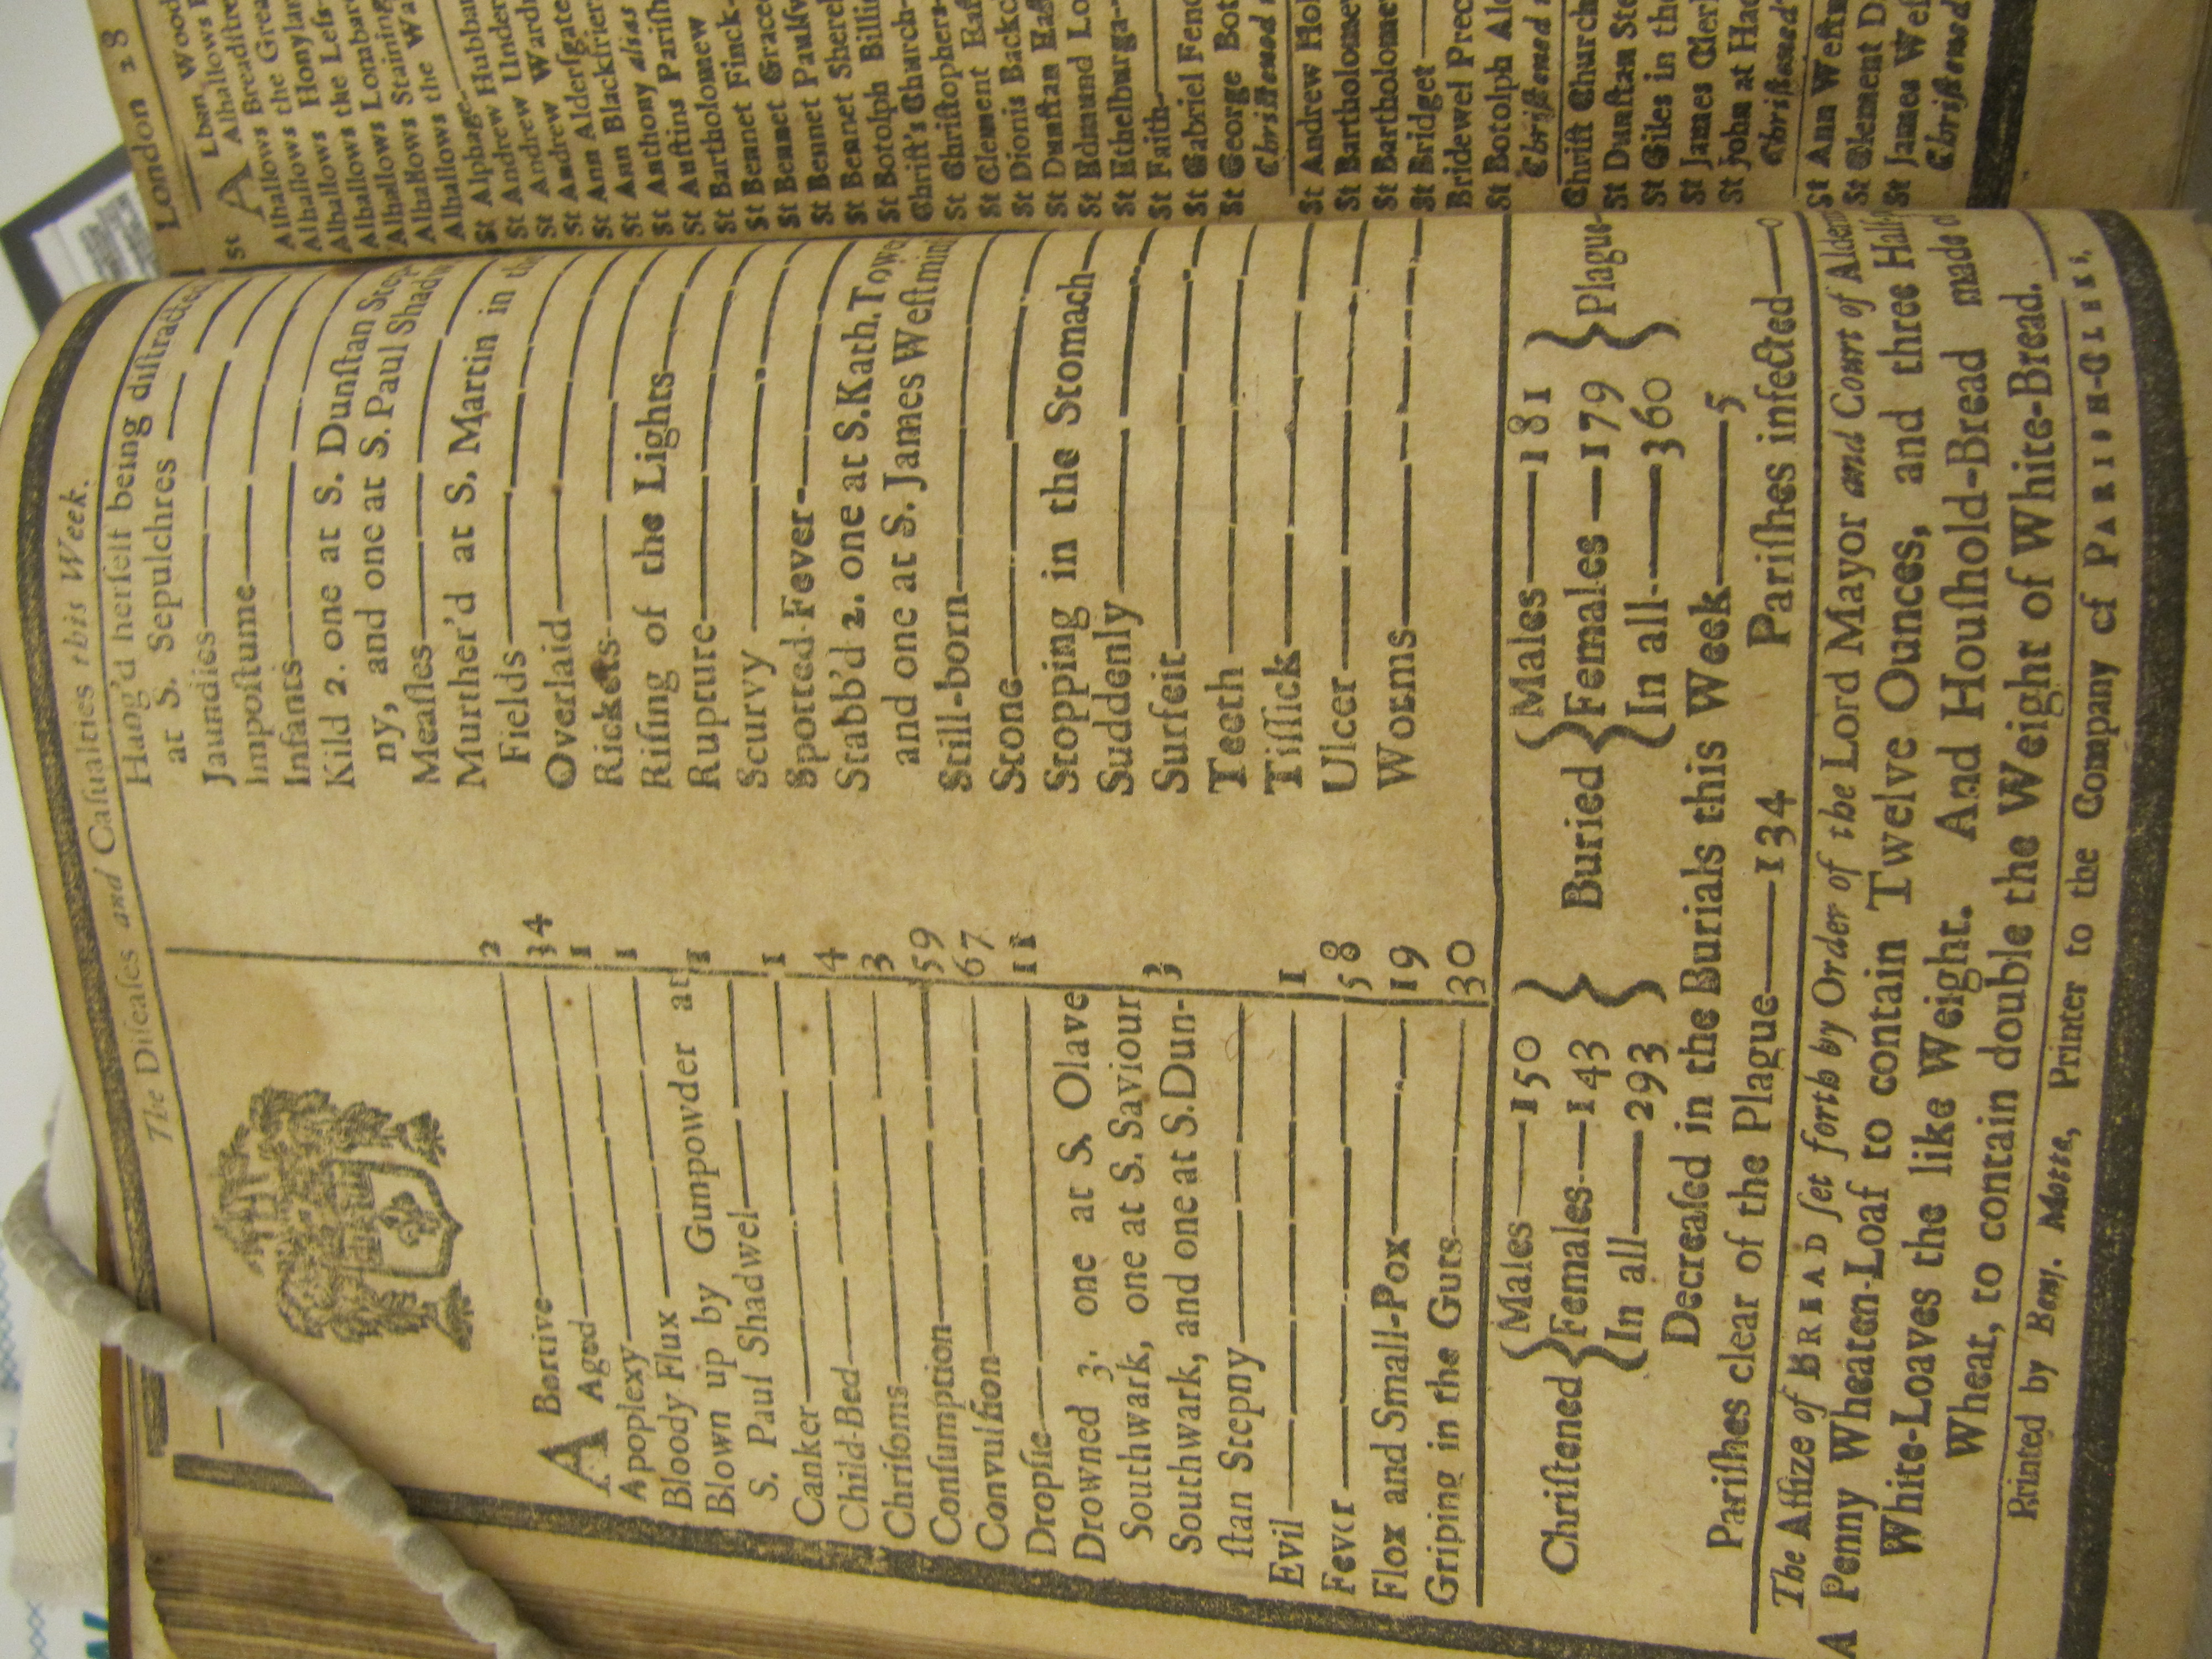 The Diſeaſes and Caſualties this Week.
A Bortive 2
Aged 34
Apoplexy 1
Bloody Flux 1
Blown up by Gunpowder at
S. Paul Shadwel 1
Canker 1
Child-Bed 4
Chriſoms 3
Conſumption 59
Convulſion 67
Dropſie 11
Drowned 3. one at S. Olave
Southwark, one at S. Saviour
Southwark, and one at S. Dun-
ſtan Stepny 3
Evil 1
Fever 58
Flox and Small-Pox 19
Griping in the Guts 30
Hang'd herſelf being diſtracted
at S. Sepulchres
Jaundies
Impoſtume
Infants
Kild 2. one at S. Dunſtan Step
ny, and one at S. Paul Shadw
Meaſles
Murther'd at S. Martin in the
Fields
Overlaid
Rickets
Riſing of the Lights
Rupture
Scurvy
Spotted Fever
Stabb'd 2. one at S. Kath. Towe
and one at S. James Weſtmin
Still-born
Stone
Stopping in the Stomach
Suddenly
Surfeit
Teeth
Tiſſick
Ulcer
Worms
Chriſtened { Males 150 Females 143 In all 293 } Buried { Males 181 Females 179 In all 360 } Plague
Decreaſed in the Burials this Week 5
Pariſhes clear of the Plague 134 Pariſhes infected 0
The Aſſize of BREAD ſet forth by Order of the Lord Mayor and Court of Alderm
A Penny Wheaten-Loaf to contain Twelve Ounces, and three Half-
White-Loaves the like Weight. And Houſhold-Bread made o
Wheat, to contain double the Weight of White-Bread.
Printed by Benj. Motte, Printer to the Company of PARISH-CLERKS,
London 28
St A Lban Wood
Alhallows
Alhallows Breadſtre
Alhallows the Grea
Alhallows Honylan
Alhallows the Leſs
Alhallows Lombar
Alhallows Staining
Alhallows the Wa
St Alphage
St Andrew Hubbar
St Andrew Under
St Andrew Wardr
St Ann Alderſgate
St Ann Blackfrier
St Anthony alias
St Auſtins Pariſh
St Bartholomew
St Bennet Finck
St Bennet Grace
St Bennet Paulſw
St Bennet Shere
St Botolph Billi
Chriſt's Church
St Chriſtophers
St Clement Eaſ
St Dionis Backc
St Dunſtan Eaſ
St Edmund Lo
St Ethelburga
St Faith
St Gabriel Fenc
St George Bot
Chriſtened
St Andrew Hol
St Bartholomew
St Bartholomew
St Bridget
Bridewel Prec
St Botolph Al
Chriſtened
Chriſt Church
St Dunſtan Ste
St Giles in the
St James Clerk
St John at Hac
Chriſtened
St Ann Weſtm
St Clement D
St James Weſ
Chriſtened